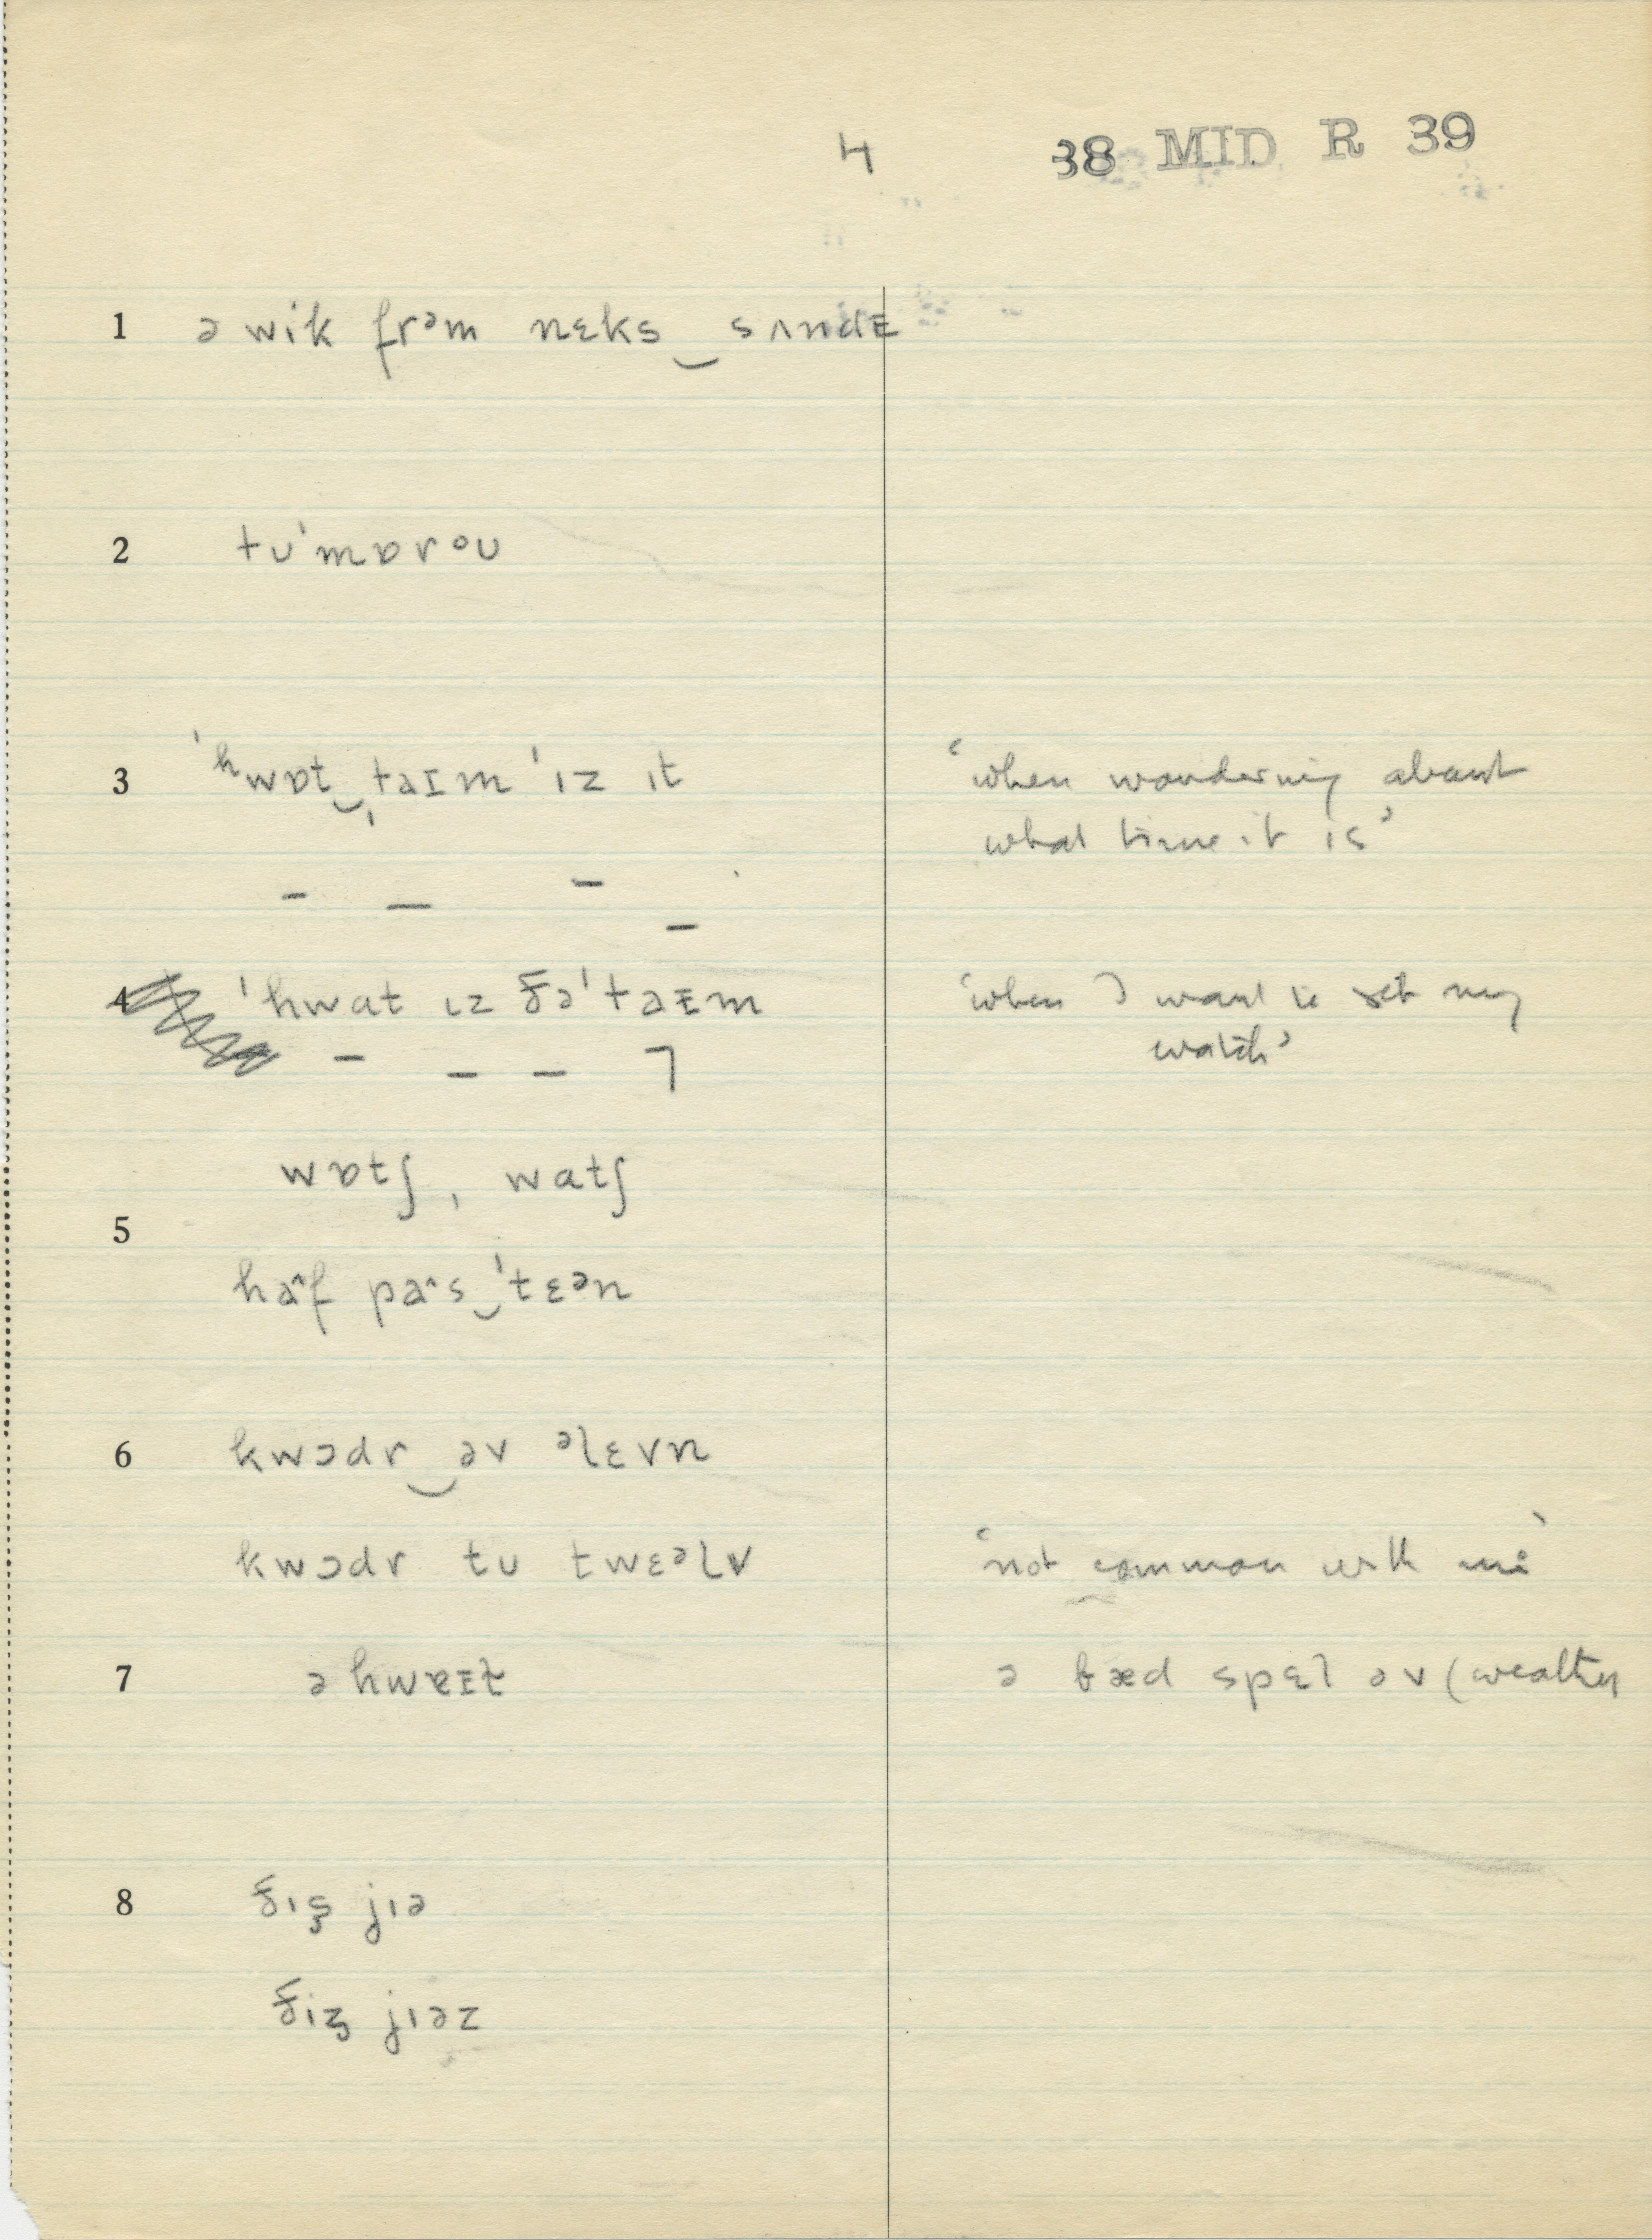 4 38 MID R 39
1 ə wik frᵊm nɛks‿sʌndᵻ
2 tᴜˈmɒrᵒᴜ
3 ˈʰwɒt‿ˌtaɪm ˈɪz ɪt ‘when wondering about
what time it is’
4 ˈhwɑt ɪz ðəˈtaᵻm ‘when I want to set my
watch’
wɒtʃ, wɑtʃ
5
ha˄f pa˄s‿ˈtɛᵊn
6 kwɔdr‿əv ᵊlɛvn
kwɔdr tᴜ twɛᵊlv ‘not common with me’
7 ə hwɐɪt ə bæd spɛl əv (weather
8 ðɪʂ jɪə
ðiʐ jɪəz